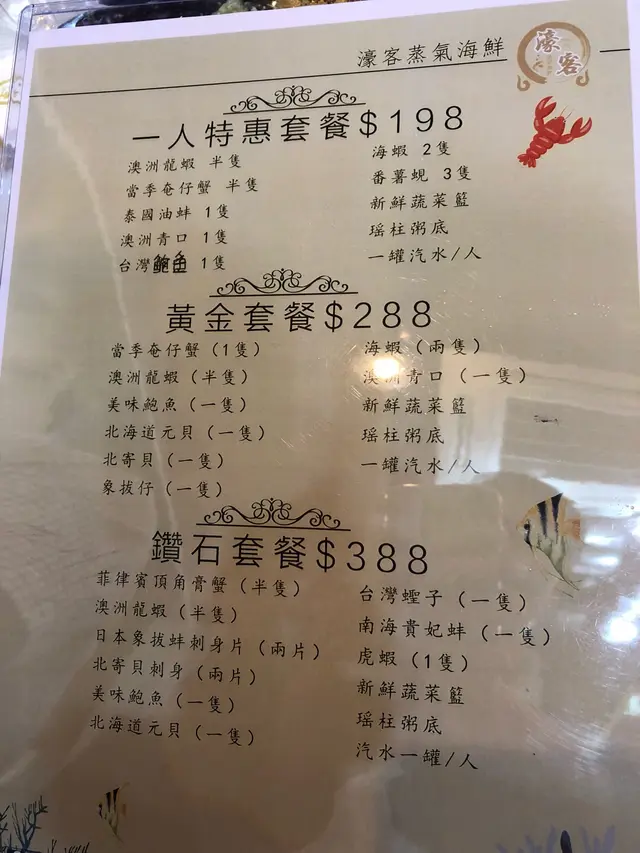 濠客蒸氣海鮮
濠客
一人特惠套餐$198
澳洲龍蝦 半隻
當季奄仔蟹 半隻
泰國油蚌 1隻
澳洲青口 1隻
台灣鮑魚 1隻
海蝦 2隻
番薯蜆 3隻
新鮮蔬菜籃
瑶柱粥底
一罐汽水/人
黃金套餐$288
當季奄仔蟹 (1隻)
澳洲龍蝦 (半隻)
美味鮑魚 (一隻)
北海道元貝 (一隻)
北寄貝 (一隻)
象拔仔 (一隻)
海蝦 (兩隻)
澳洲青口 (一隻)
新鮮蔬菜籃
瑶柱粥底
一罐汽水/人
鑽石套餐$388
菲律賓頂角膏蟹 (半隻)
澳洲龍蝦 (半隻)
日本象拔蚌刺身片 (兩片)
北寄貝刺身 (兩片)
美味鮑魚 (一隻)
北海道元貝 (一隻)
台灣蟶子 (一隻)
南海貴妃蚌 (一隻)
虎蝦 (1隻)
新鮮蔬菜籃
瑶柱粥底
汽水一罐/人